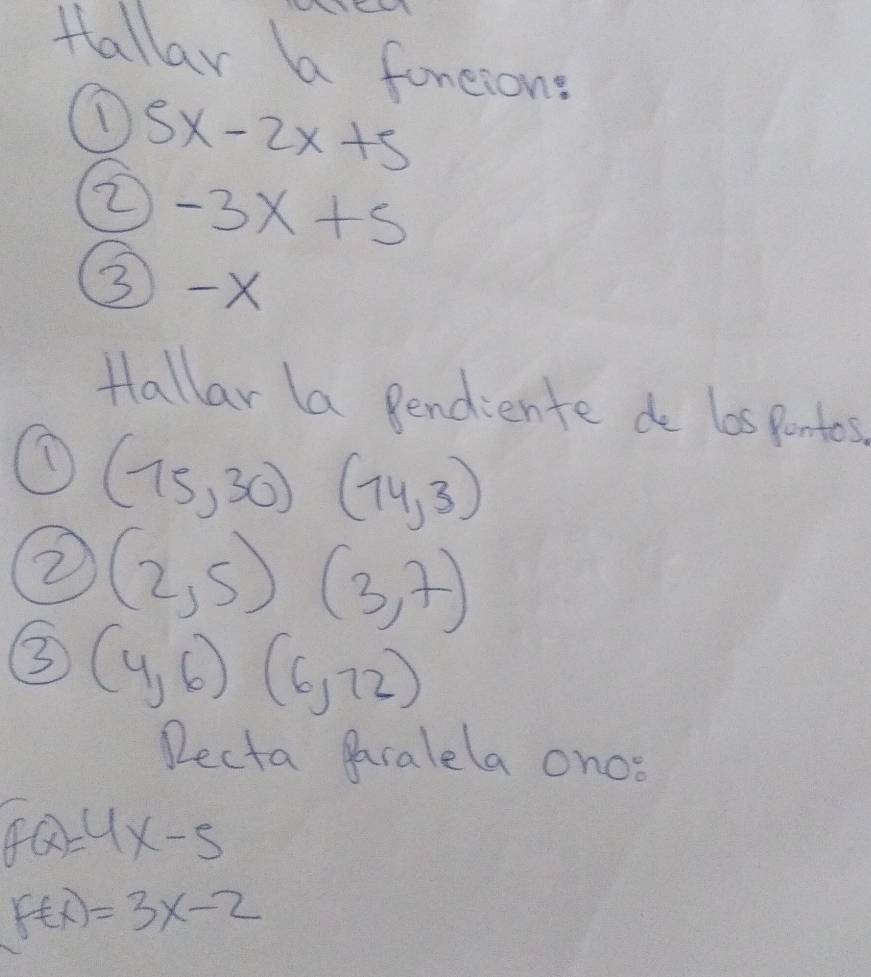 Hallar la funcion:
① 5x-2x+5
② -3x+5
③ -x
Hallar la pendiente de los puntos.
① (15,30) (14,3)
② (2,5) (3,7)
③ (4,6) (6,12)
Recta paralela ono:
f(x)=4x-5
f(x)=3x-2